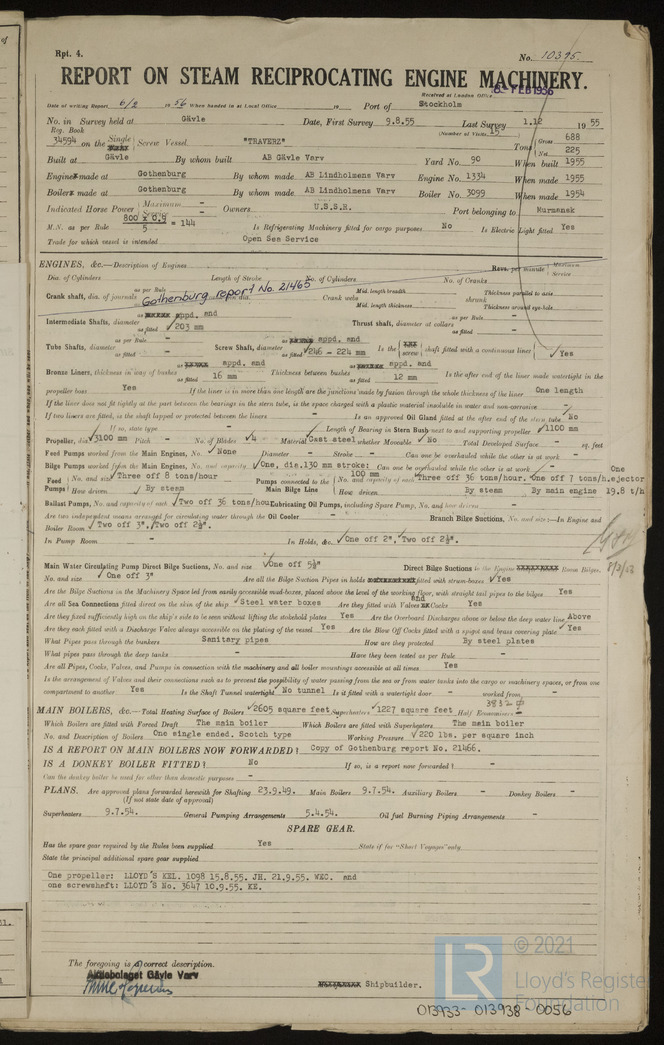 Rpt. 4.
No. 10395.
REPORT ON STEAM RECIPROCATING ENGINE MACHINERY.
Received at London Office 8 - FEB 1956
Date of writing Report 6/2 1956 When handed in at Local Office 19 Port of Stockholm
No. in Survey held at Gävle Date, First Survey 9.8.55 Last Survey 1.12 1955
Reg. Book (Number of Visits 15)
34594 on the Single Screw Vessel "TRAVERZ" Tons Gross 688 Net 225
Built at Gävle By whom built AB Gävle Varv Yard No. 90 When built 1955
Engines made at Gothenburg By whom made AB Lindholmens Varv Engine No. 1334 When made 1955
Boilers made at Gothenburg By whom made AB Lindholmens Varv Boiler No. 3099 When made 1954
Indicated Horse Power Maximum - Owners U.S.S.R. Port belonging to Murmansk
M.N. as per Rule 800 x 0.9 / 5 = 144 Is Refrigerating Machinery fitted for cargo purposes No Is Electric Light fitted Yes
Trade for which vessel is intended Open Sea Service
ENGINES, &c.—Description of Engines Revs. per minute Maximum Service
Dia. of Cylinders Length of Stroke No. of Cylinders No. of Cranks
Gothenburg report No. 21465
Crank shaft, dia. of journals as per Rule as fitted Crank webs Mid. length breadth Mid. length thickness shrunk Thickness parallel to axis Thickness around eye-hole
Intermediate Shafts, diameter appd. and as fitted 203 mm Thrust shaft, diameter at collars as per Rule - as fitted -
Tube Shafts, diameter as per Rule - as fitted - Screw Shaft, diameter appd. and as fitted 246 - 224 mm Is the screw shaft fitted with a continuous liner Yes
Bronze Liners, thickness in way of bushes appd. and as fitted 16 mm Thickness between bushes appd. and as fitted 12 mm Is the after end of the liner made watertight in the
propeller boss Yes If the liner is in more than one length are the junctions made by fusion through the whole thickness of the liner One length
If the liner does not fit tightly at the part between the bearings in the stern tube, is the space charged with a plastic material insoluble in water and non-corrosive -
If two liners are fitted, is the shaft lapped or protected between the liners - Is an approved Oil Gland fitted at the after end of the stern tube No
If so, state type - Length of Bearing in Stern Bush next to and supporting propeller 1100 mm
Propeller, dia. 3100 mm Pitch - No. of Blades 4 Material Cast steel whether Moveable No Total Developed Surface - sq. feet
Feed Pumps worked from the Main Engines, No. None Diameter - Stroke - Can one be overhauled while the other is at work -
Bilge Pumps worked from the Main Engines, No. and capacity One, dia.130 mm stroke: 100 mm Can one be overhauled while the other is at work -
Feed Pumps No. and size Three off 8 tons/hour Pumps connected to the Main Bilge Line No. and capacity of each Three off 36 tons/hour. One off 7 tons/h. One ejector
How driven By steam How driven By steam By main engine 19.8 t/h
Ballast Pumps, No. and capacity of each Two off 36 tons/hour Lubricating Oil Pumps, including Spare Pump, No. and how driven -
Are two independent means arranged for circulating water through the Oil Cooler - Branch Bilge Suctions, No. and size:—In Engine and
Boiler Room Two off 3". Two off 2½".
In Pump Room - In Holds, &c. One off 2", Two off 2½".
Main Water Circulating Pump Direct Bilge Suctions, No. and size One off 5½" Direct Bilge Suctions to the Engine Room Bilges,
No. and size One off 3" Are all the Bilge Suction Pipes in holds fitted with strum-boxes Yes
Are the Bilge Suctions in the Machinery Space led from easily accessible mud-boxes, placed above the level of the working floor, with straight tail pipes to the bilges Yes
Are all Sea Connections fitted direct on the skin of the ship Steel water boxes Are they fitted with Valves and Cocks Yes
Are they fixed sufficiently high on the ship's side to be seen without lifting the stokehold plates Yes Are the Overboard Discharges above or below the deep water line Above
Are they each fitted with a Discharge Valve always accessible on the plating of the vessel Yes Are the Blow Off Cocks fitted with a spigot and brass covering plate Yes
What Pipes pass through the bunkers Sanitary pipes How are they protected By steel plates
What pipes pass through the deep tanks - Have they been tested as per Rule -
Are all Pipes, Cocks, Valves, and Pumps in connection with the machinery and all boiler mountings accessible at all times Yes
Is the arrangement of Valves and their connections such as to prevent the possibility of water passing from the sea or from water tanks into the cargo or machinery spaces, or from one
compartment to another Yes Is the Shaft Tunnel watertight No tunnel Is it fitted with a watertight door - worked from -
3832
MAIN BOILERS, &c.—Total Heating Surface of Boilers 2605 square feet Superheaters 1227 square feet
Which Boilers are fitted with Forced Draft The main boiler Which Boilers are fitted with Superheaters The main boiler
No. and Description of Boilers One single ended. Scotch type Working Pressure 220 lbs. per square inch
IS A REPORT ON MAIN BOILERS NOW FORWARDED? Copy of Gothenburg report No. 21466.
IS A DONKEY BOILER FITTED? No If so, is a report now forwarded? -
Can the donkey boiler be used for other than domestic purposes -
PLANS. Are approved plans forwarded herewith for Shafting 23.9.49. Main Boilers 9.7.54. Auxiliary Boilers - Donkey Boilers -
(If not state date of approval)
Superheaters 9.7.54. General Pumping Arrangements 5.4.54. Oil fuel Burning Piping Arrangements -
SPARE GEAR.
Has the spare gear required by the Rules been supplied Yes State if for "Short Voyages" only
State the principal additional spare gear supplied
One propeller: LLOYD'S KEL. 1098 15.8.55. JH. 21.9.55. WEC. and
one screwshaft: LLOYD'S No. 3647 10.9.55. KE.
The foregoing is a correct description.
Aktiebolaget Gävle Varv
Shipbuilder.
LR © 2021
Lloyd's Register
Foundation
013933-013938-0056